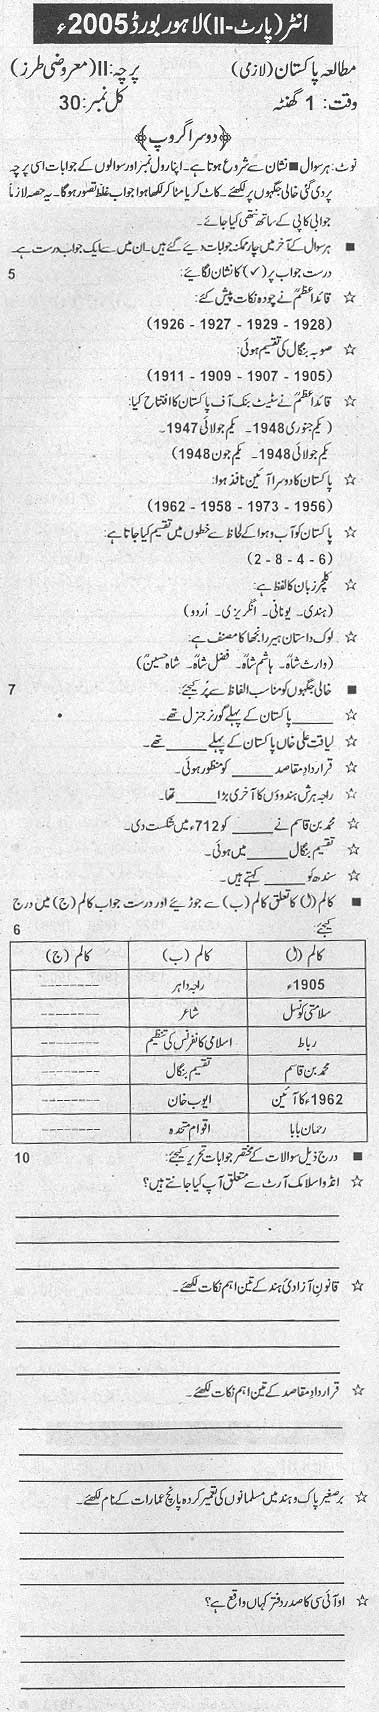 انٹر (پارٹ-II) لاہور بورڈ 2005ء
مطالعہ پاکستان (لازمی) پرچہ: II (معروضی طرز)
وقت: 1 گھنٹہ کل نمبر: 30
﴿دوسرا گروپ﴾
نوٹ: ہر سوال ■ نشان سے شروع ہوتا ہے۔ اپنا رول نمبر اور سوالوں کے جوابات اسی پرچہ
پر دی گئی خالی جگہوں پر لکھئے۔ کاٹ کر یا مٹا کر لکھا ہوا جواب غلط تصور ہو گا۔ یہ حصہ لازماً
جوابی کاپی کے ساتھ نتھی کیا جائے۔
■ ہر سوال کے آخر میں چار ممکنہ جوابات دیے گئے ہیں۔ ان میں سے ایک جواب درست ہے۔
درست جواب پر (✓) کا نشان لگائیے: 5
☆ قائداعظمؒ نے چودہ نکات پیش کئے:
(1926 - 1927 - 1929 - 1928)
☆ صوبہ بنگال کی تقسیم ہوئی:
(1911 - 1909 - 1907 - 1905)
☆ قائداعظمؒ نے سٹیٹ بنک آف پاکستان کا افتتاح کیا:
(یکم جنوری 1948۔ یکم جولائی 1947۔
یکم جولائی 1948۔ یکم جون 1948)
☆ پاکستان کا دوسرا آئین نافذ ہوا:
(1962 - 1958 - 1973 - 1956)
☆ پاکستان کو آب و ہوا کے لحاظ سے خطوں میں تقسیم کیا جاتا ہے:
(2 - 8 - 4 - 6)
☆ کلچر زبان کا لفظ ہے:
(ہندی۔ یونانی۔ انگریزی۔ اُردو)
☆ لوک داستان ہیر رانجھا کا مصنف ہے:
(وارث شاہؒ۔ ہاشم شاہؒ۔ فضل شاہؒ۔ شاہ حسینؒ)
■ خالی جگہوں کو مناسب الفاظ سے پُر کیجئے: 7
☆ _____ پاکستان کے پہلے گورنر جنرل تھے۔
☆ لیاقت علی خاں پاکستان کے پہلے _____ تھے۔
☆ قرارداد مقاصد _____ کو منظور ہوئی۔
☆ راجہ ہرش ہندوؤں کا آخری بڑا _____ تھا۔
☆ محمد بن قاسم نے _____ کو 712ء میں شکست دی۔
☆ تقسیم بنگال _____ میں ہوئی۔
☆ سندھ کو _____ کہتے ہیں۔
■ کالم (ا) کا تعلق کالم (ب) سے جوڑیئے اور درست جواب کالم (ج) میں درج
کیجئے: 6
کالم (ا) کالم (ب) کالم (ج)
1905ء راجہ داہر --------
سلامتی کونسل شاعر --------
رباط اسلامی کانفرنس کی تنظیم --------
محمد بن قاسم تقسیم بنگال --------
1962ء کا آئین ایوب خان --------
رحمان بابا اقوام متحدہ --------
■ درج ذیل سوالات کے مختصر جوابات تحریر کیجئے: 10
☆ انڈو اسلامک آرٹ سے متعلق آپ کیا جانتے ہیں؟
☆ قانون آزادیٔ ہند کے تین اہم نکات لکھئے۔
☆ قرارداد مقاصد کے تین اہم نکات لکھئے۔
☆ برصغیر پاک و ہند میں مسلمانوں کی تعمیر کردہ پانچ عمارات کے نام لکھئے۔
☆ او آئی سی کا صدر دفتر کہاں واقع ہے؟